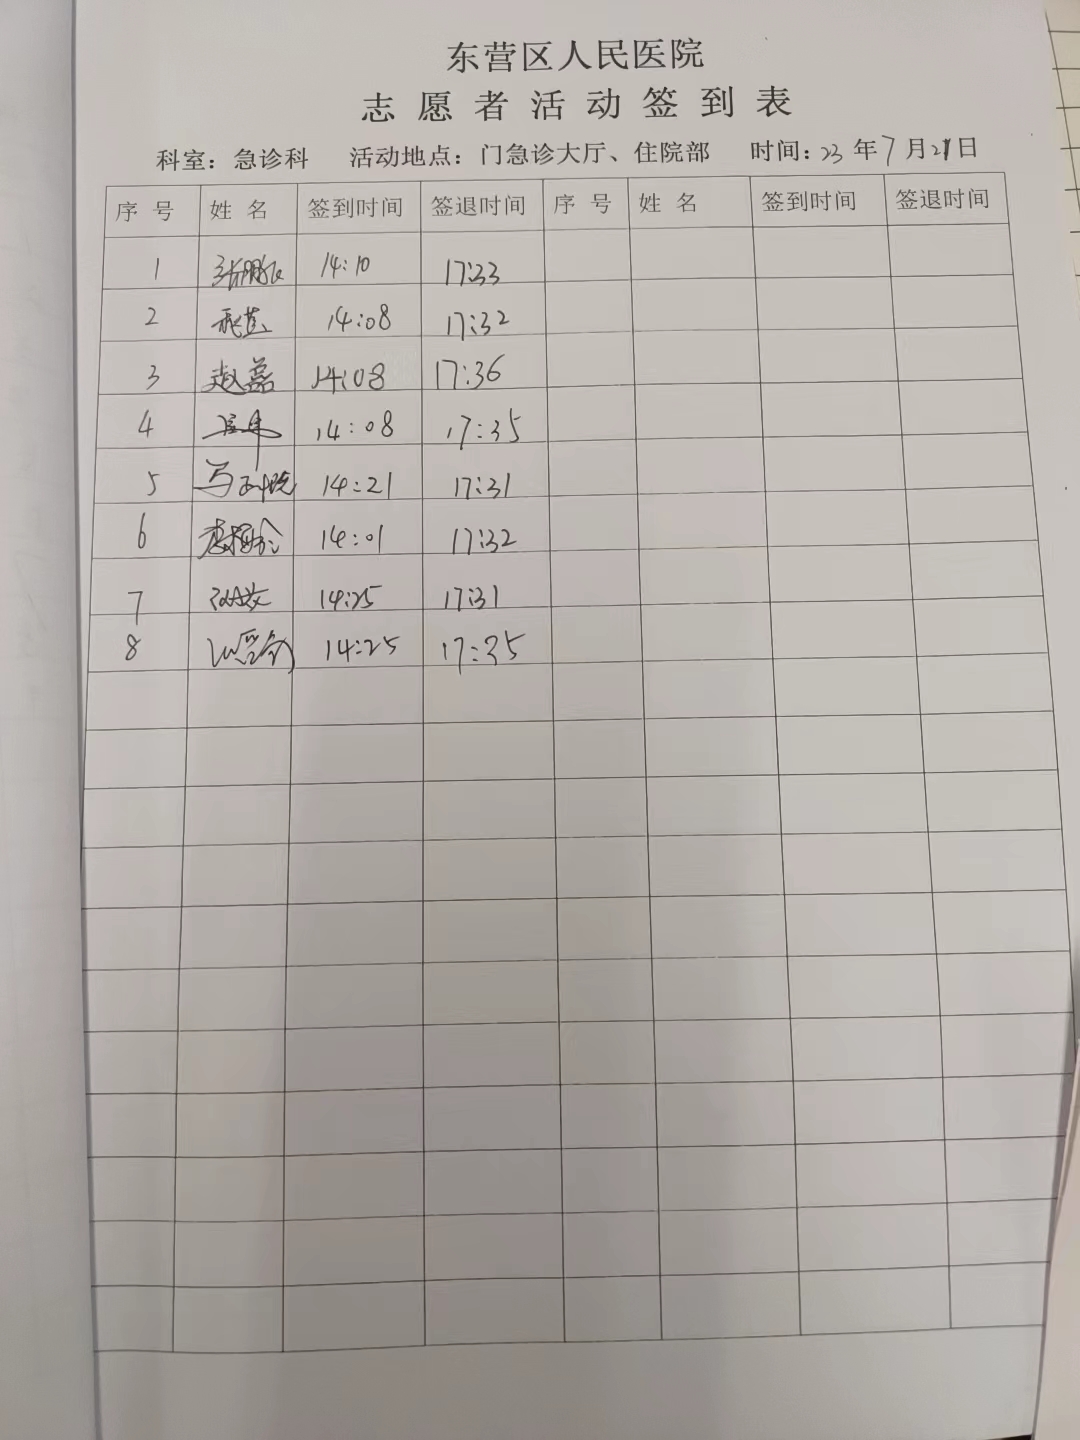 东营区人民医院
志愿者活动签到表
科室：急诊科 活动地点：门急诊大厅、住院部 时间：23年7月21日
序号 姓名 签到时间 签退时间 序号 姓名 签到时间 签退时间
1 14:10 17:33
2 14:08 17:32
3 赵磊 14:08 17:36
4 14:08 17:35
5 14:21 17:31
6 14:01 17:32
7 14:25 17:31
8 14:25 17:35